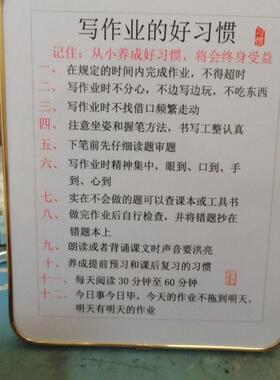 写作业的好习惯
记住：从小养成好习惯，将会终身受益
一、在规定的时间内完成作业，不得超时
二、写作业时不分心，不边写边玩，不吃东西
三、写作业时不找借口频繁走动
四、注意坐姿和握笔方法，书写工整认真
五、下笔前先仔细读题审题
六、写作业时精神集中，眼到、口到、手
到、心到
七、实在不会做的题可以查课本或工具书
八、做完作业后自行检查，并将错题抄在
错题本上
九、朗读或者背诵课文时声音要洪亮
十、养成提前预习和课后复习的习惯
十一、每天阅读 30 分钟至 60 分钟
十二、今日事今日毕，今天的作业不拖到明天，
明天有明天的作业